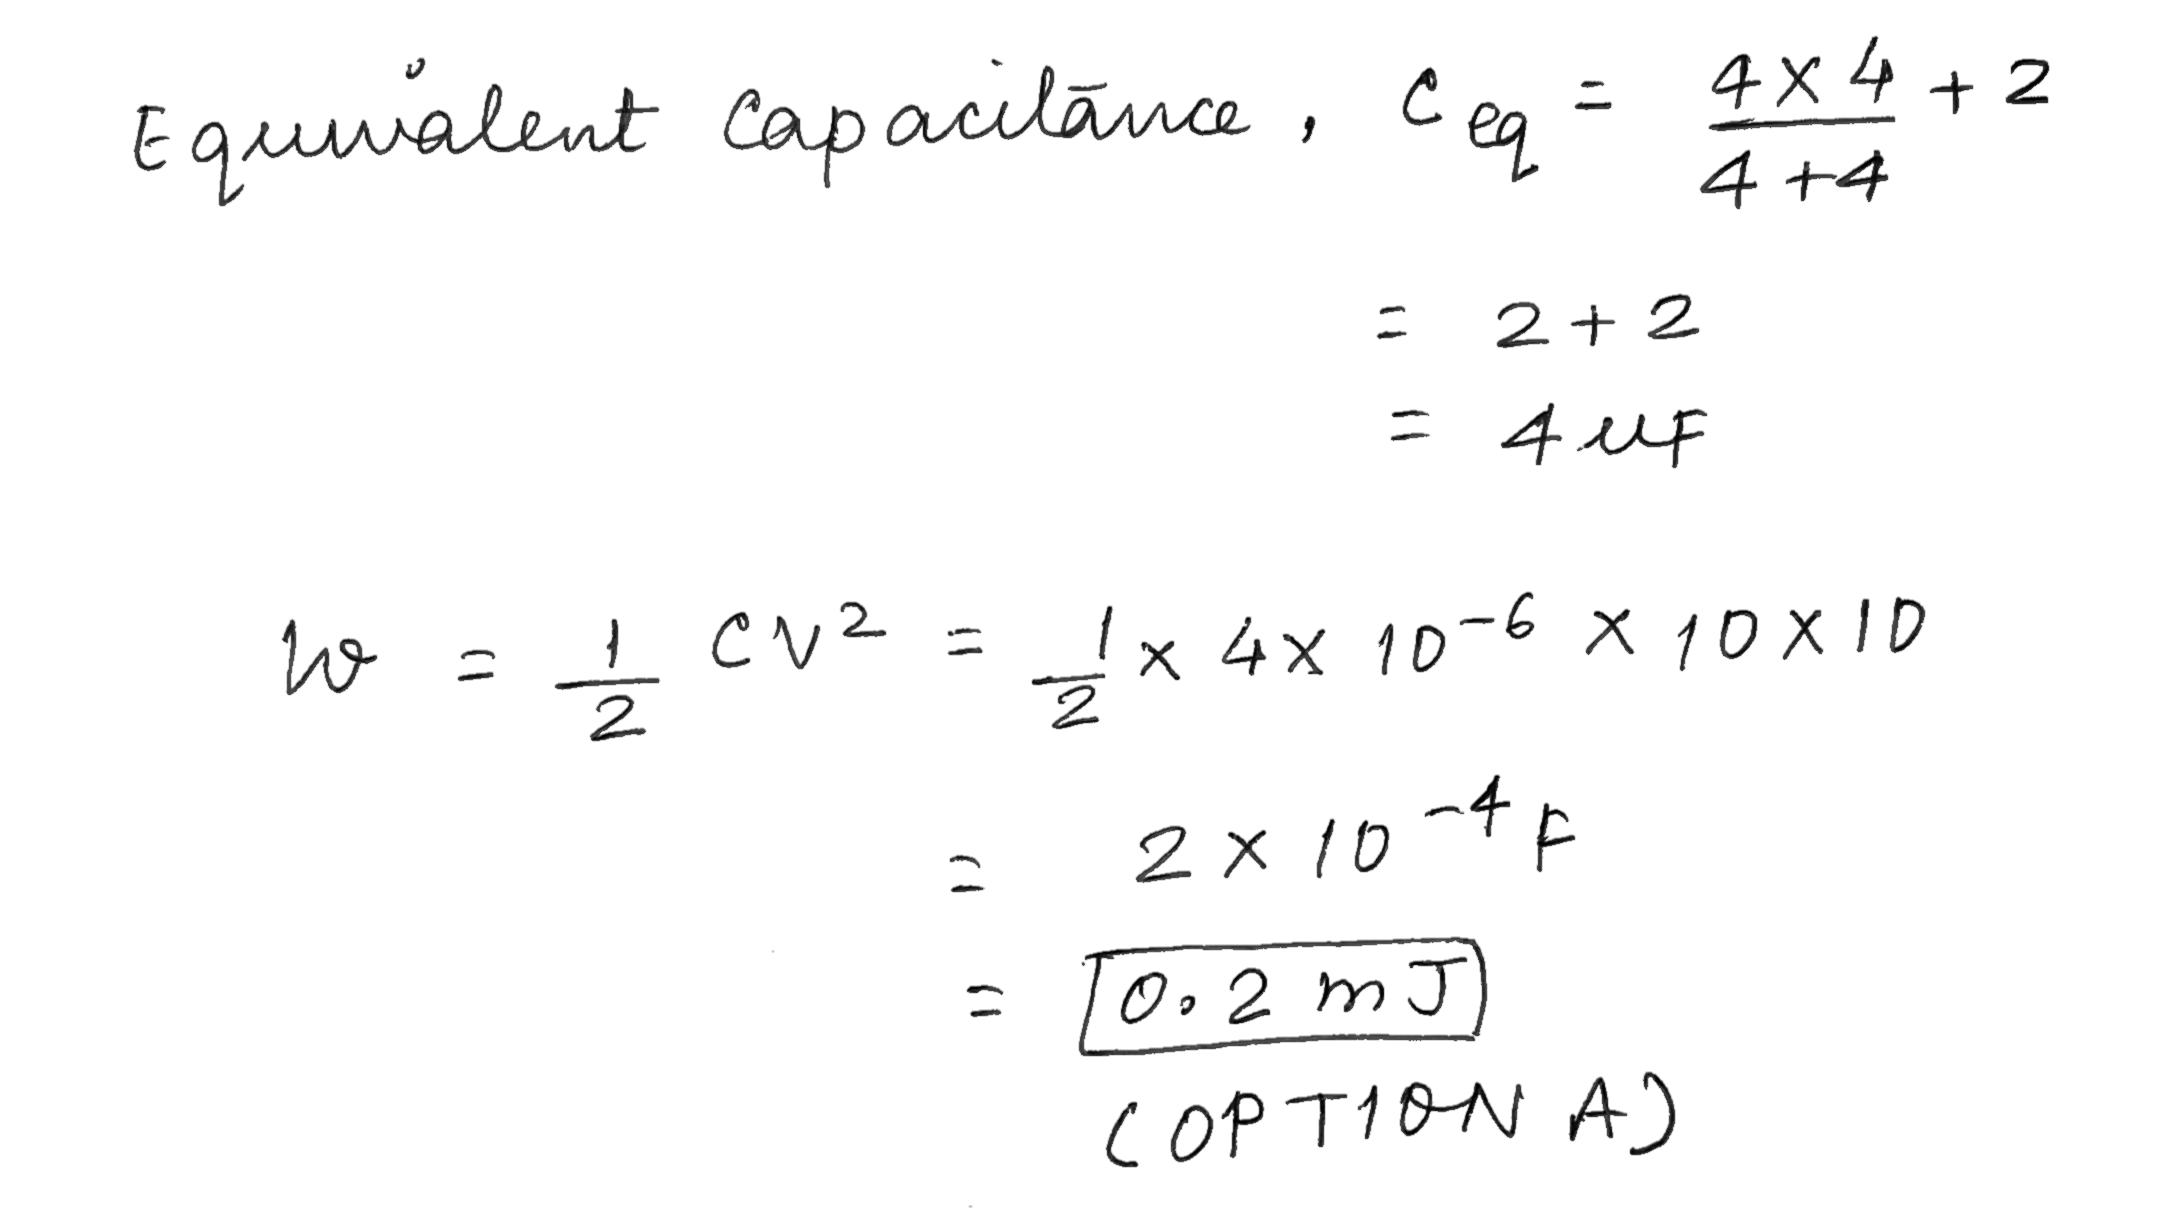 Equivalent Capacitance, Ceq = 4×4/4+4 + 2
= 2+2
= 4 uF
W = 1/2 CV² = 1/2 × 4× 10⁻⁶ × 10×10
= 2×10⁻⁴ F
= 0.2 mJ
(OPTION A)